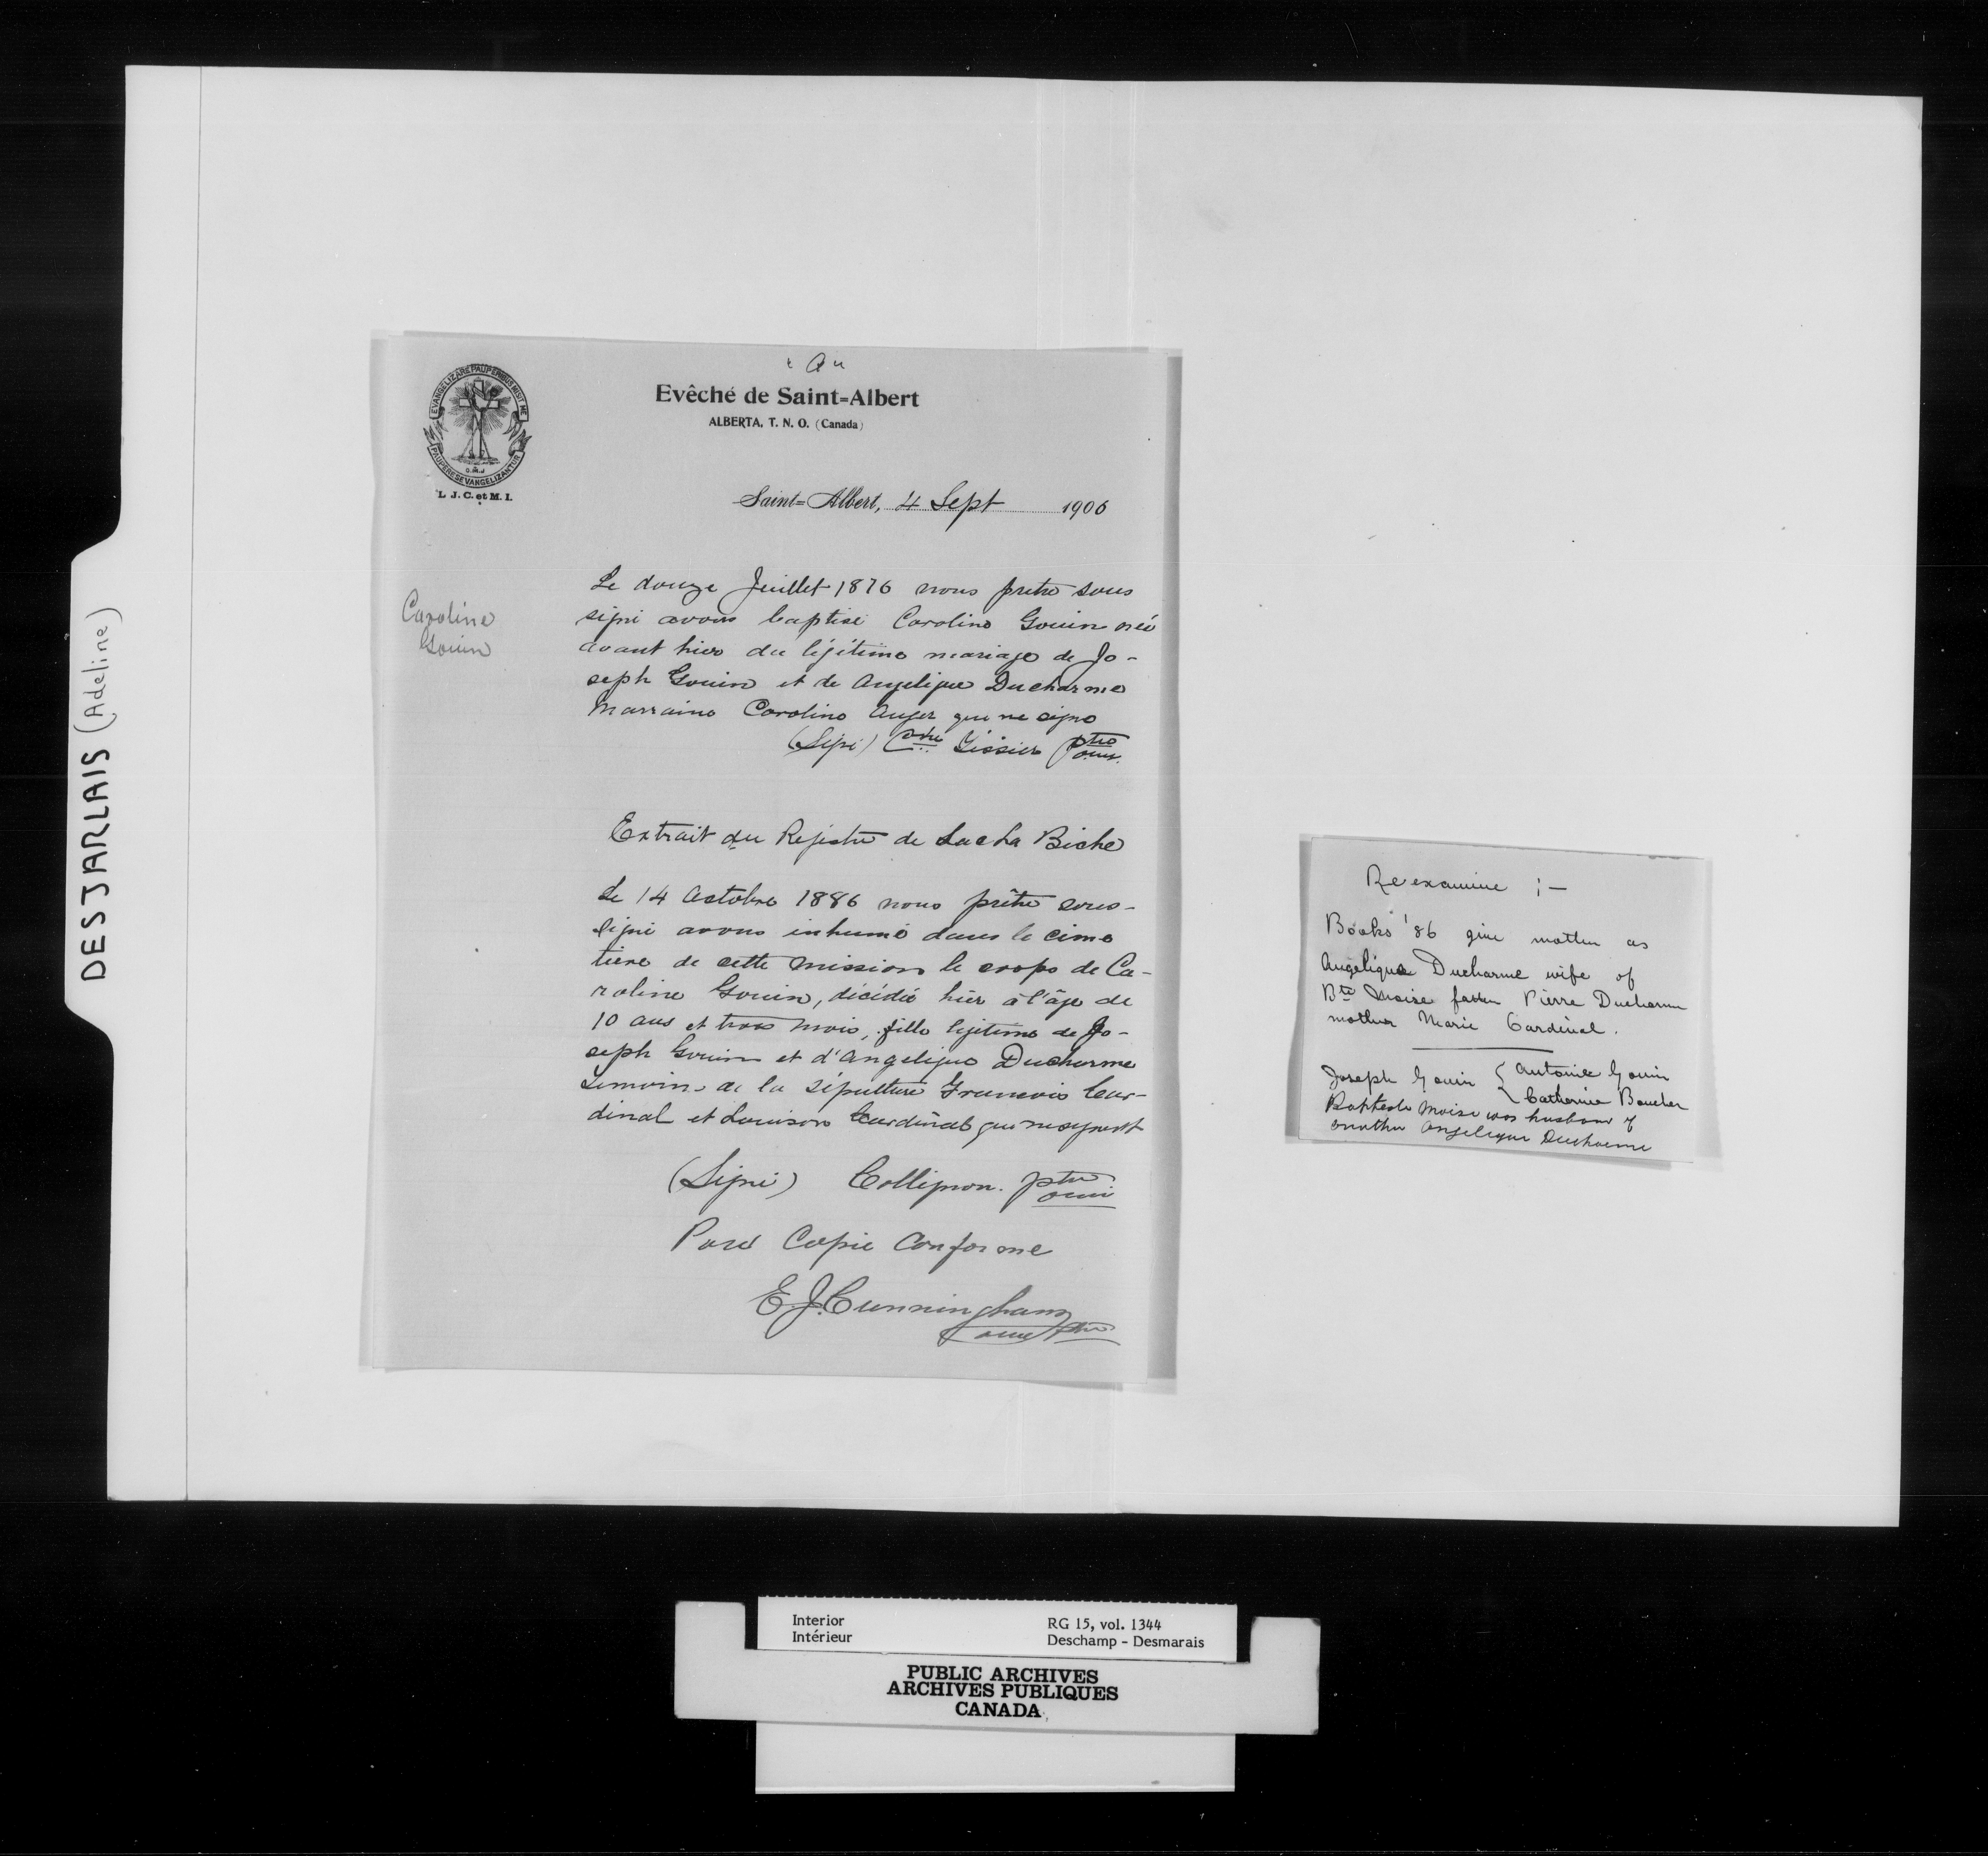 DESJARLAIS (Adeline)
"A"
EVANGELIZARE PAUPERIBUS MISIT ME
PAUPERES EVANGELIZANTUR
O.M.I
L. J. C. et M. I.
Evêché de Saint=Albert
ALBERTA, T. N. O. (Canada)
Saint=Albert, 4 Sept 1906
Caroline
Gouin
Le douze Juillet 1876 nous pretre sous
signé avons baptisé Caroline Gouin née
avant hier du légitime mariage de Jo-
seph Gouin et de Angelique Ducharme
Marraine Caroline Auger qui ne signe
(Signé) Tissier ptre omi.
Extrait du Registre de Lac La Biche
Le 14 Octobre 1886 nous prêtre sous-
signé avons inhumé dans le cime
tière de cette Mission le corps de Ca-
roline Gouin, décédée hier à l'âge de
10 ans et trois mois, fille legitime de Jo-
seph Gouin et d'Angelique Ducharme
Temoins de la sépulture Francois Car-
dinal et Louison Cardinal qui ne signent
(Signé) Collignon. ptre omi
Pour Copie Conforme
E. J. Cunningham
omi ptre
Re examine ;—
Books '86 give mother as
Angelique Ducharme wife of
Bte Moise father Pierre Ducharme
mother Marie Cardinal.
Joseph Gouin { Antoine Gouin
Catherine Boucher
Baptiste Moise was husband of
another Angelique Ducharme
Interior
Intérieur
RG 15, vol. 1344
Deschamp - Desmarais
PUBLIC ARCHIVES
ARCHIVES PUBLIQUES
CANADA